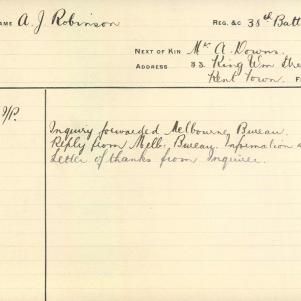 NAME A. J. Robinson REG. &C 38th Batt
NEXT OF KIN Mr A. Downs.
ADDRESS 33 King Wm Stre
Kent Town.
Inquiry forwarded Melbourne Bureau.
Reply from Melb. Bureau. Information
Letter of thanks from Inquirer.